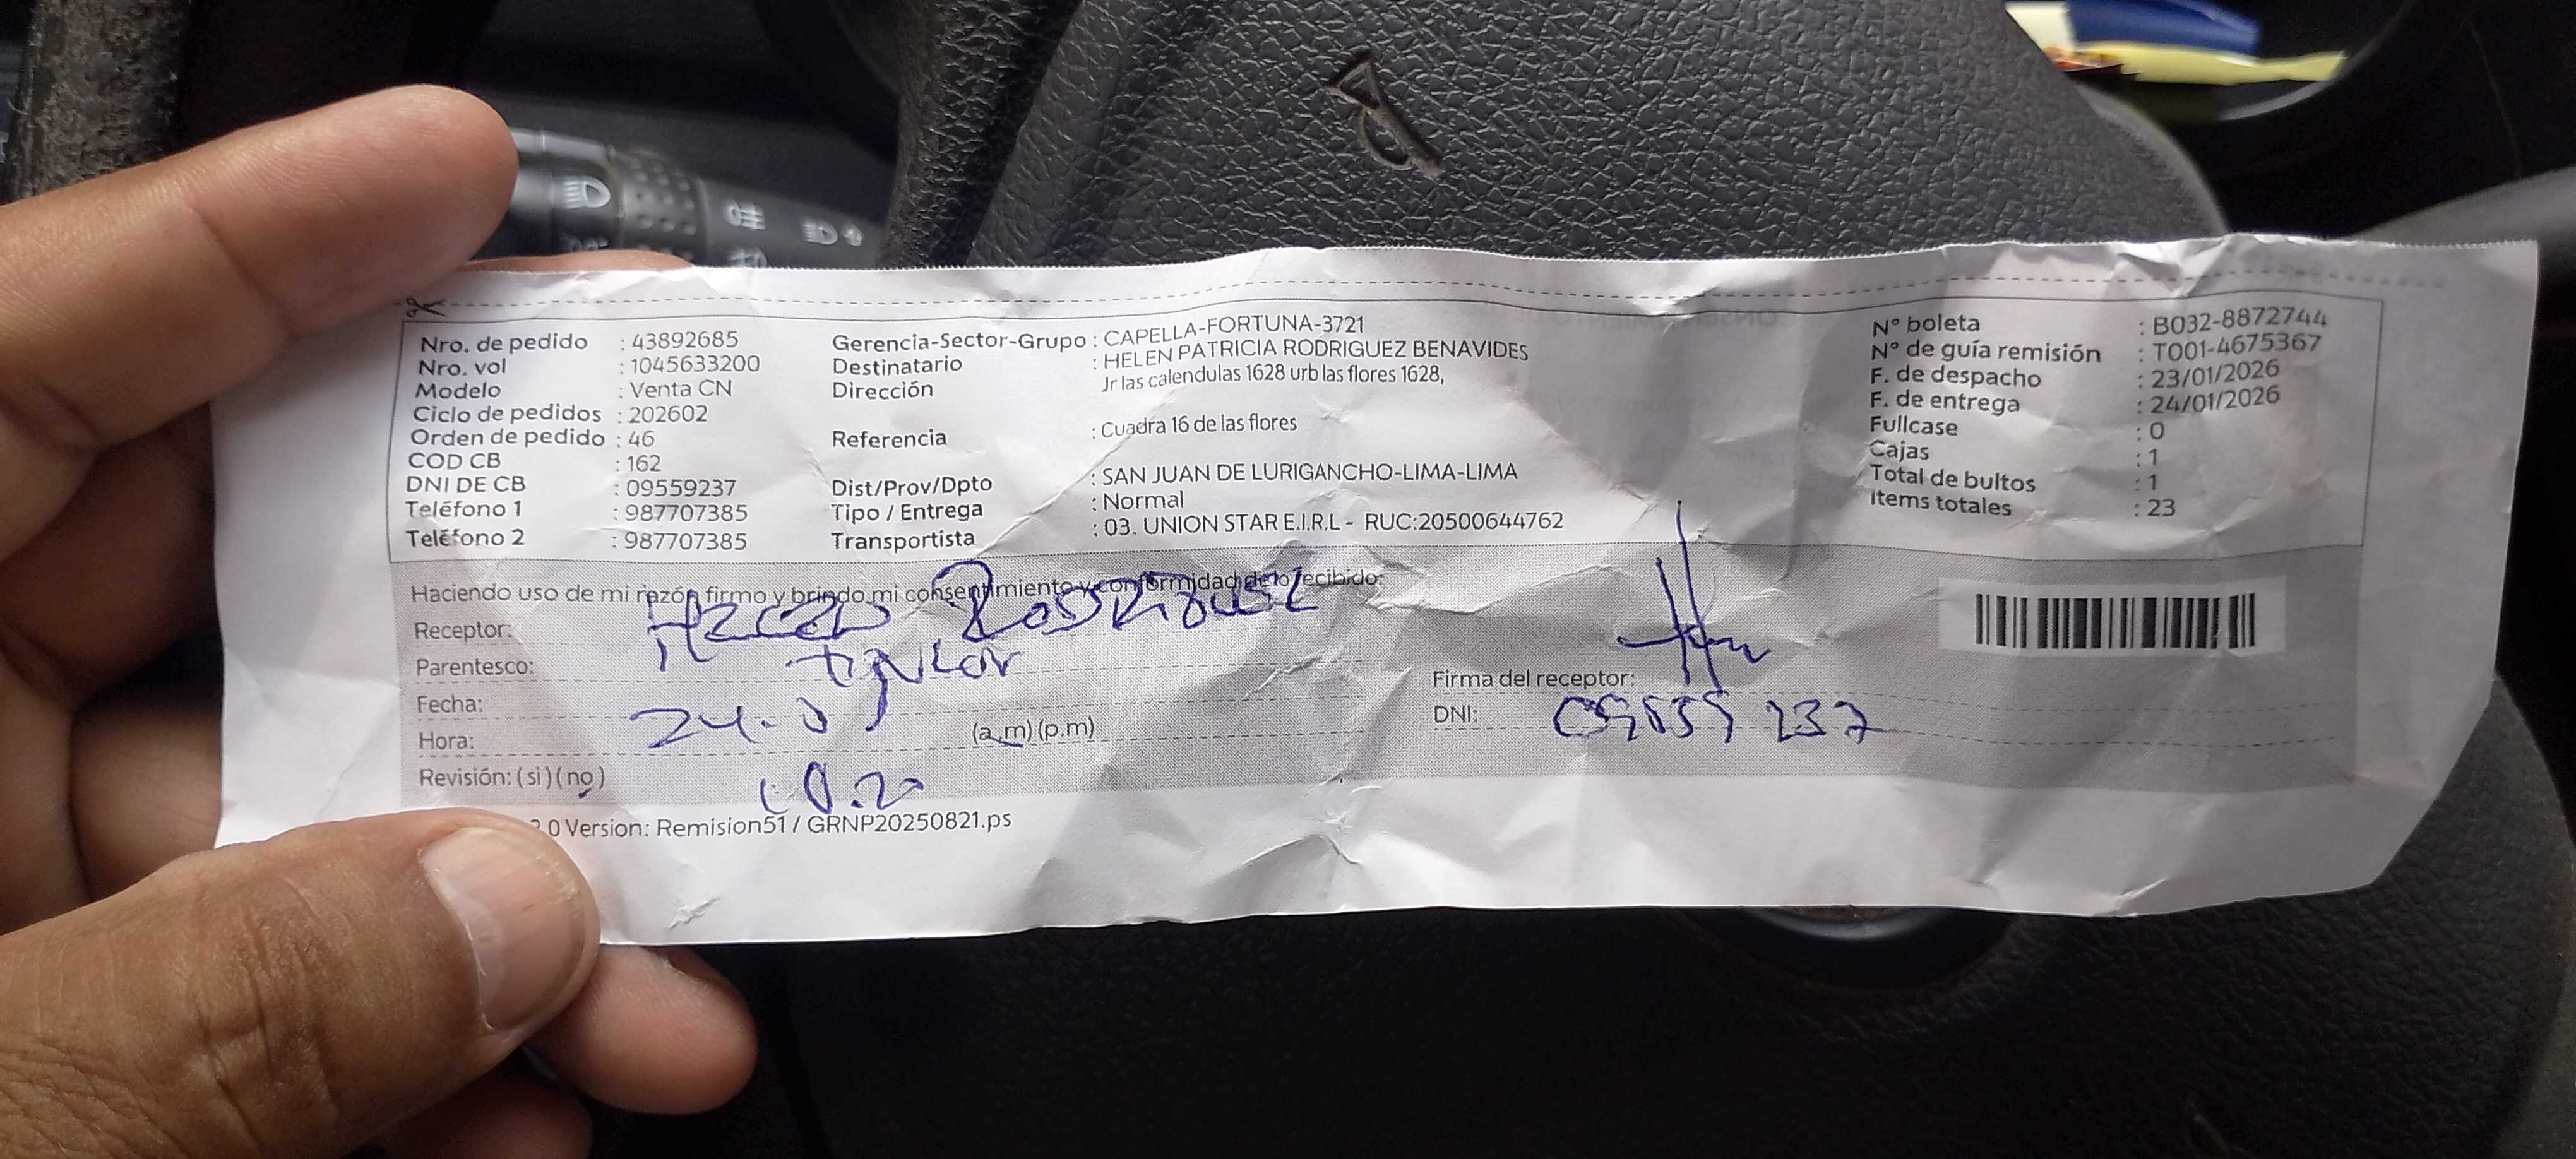 Nro. de pedido : 43892685
Nro. vol : 1045633200
Modelo : Venta CN
Ciclo de pedidos : 202602
Orden de pedido : 46
COD CB : 162
DNI DE CB : 09559237
Teléfono 1 : 987707385
Teléfono 2 : 987707385
Gerencia-Sector-Grupo : CAPELLA-FORTUNA-3721
Destinatario : HELEN PATRICIA RODRIGUEZ BENAVIDES
Dirección Jr las calendulas 1628 urb las flores 1628,
Referencia : Cuadra 16 de las flores
Dist/Prov/Dpto : SAN JUAN DE LURIGANCHO-LIMA-LIMA
Tipo / Entrega : Normal
Transportista : 03. UNION STAR E.I.R.L - RUC:20500644762
N° boleta : B032-8872744
N° de guía remisión : T001-4675367
F. de despacho : 23/01/2026
F. de entrega : 24/01/2026
Fullcase : 0
Cajas : 1
Total de bultos : 1
Items totales : 23
Haciendo uso de mi razón firmo y brindo mi consentimiento y conformidad de lo recibido:
Receptor: Helen Rodriguez
Parentesco: titular
Fecha: 24.01
Hora: (a.m) (p.m)
Revisión: (si) (no) 10.20
Firma del receptor:
DNI: 09559237
2.0 Version: Remision51 / GRNP20250821.ps